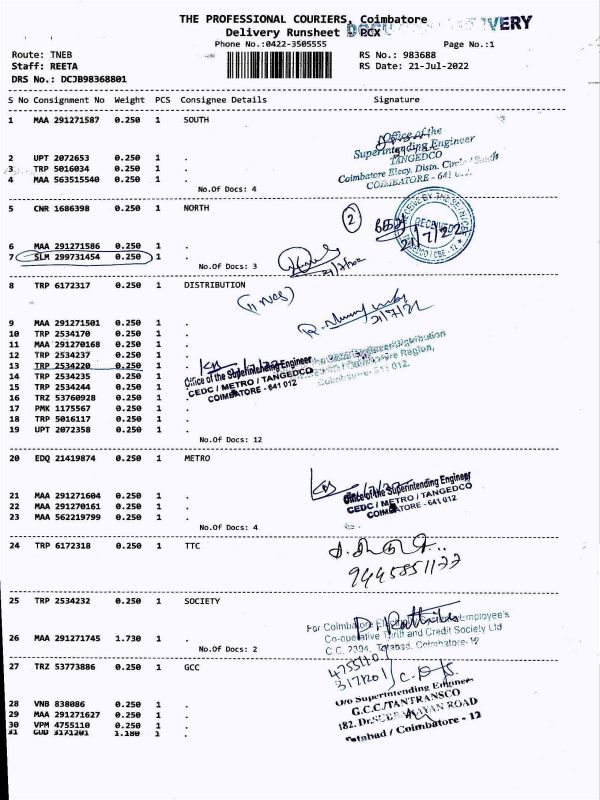 THE PROFESSIONAL COURIERS, Coimbatore
Delivery Runsheet PCX
Phone No.:0422-3505555 Page No.:1
Route: TNEB RS No.: 983688
Staff: REETA RS Date: 21-Jul-2022
DRS No.: DCJB98368801
S No Consignment No Weight PCS Consignee Details Signature
1 MAA 291271587 0.250 1 SOUTH
Office of the
Superintending Engineer
TANGEDCO
Coimbatore Elecy. Distn. Circle / South
COIMBATORE - 641
2 UPT 2072653 0.250 1 .
3 TRP 5016034 0.250 1 .
4 MAA 563515540 0.250 1 .
No.Of Docs: 4
5 CNR 1686398 0.250 1 NORTH
2
RECEIVED
21/7/22
6 MAA 291271586 0.250 1 .
7 SLM 299731454 0.250 1 .
No.Of Docs: 3
8 TRP 6172317 0.250 1 DISTRIBUTION
9 MAA 291271501 0.250 1 .
10 TRP 2534170 0.250 1 .
11 MAA 291270168 0.250 1 .
12 TRP 2534237 0.250 1 .
13 TRP 2534220 0.250 1 .
14 TRP 2534235 0.250 1 .
15 TRP 2534244 0.250 1 .
16 TRZ 53760928 0.250 1 .
17 PMK 1175567 0.250 1 .
18 TRP 5016117 0.250 1 .
19 UPT 2072358 0.250 1 .
Office of the Superintending Engineer
CEDC / METRO / TANGEDCO
COIMBATORE - 641 012
No.Of Docs: 12
20 EDQ 21419874 0.250 1 METRO
Office of the Superintending Engineer
CEDC / METRO / TANGEDCO
COIMBATORE - 641 012
21 MAA 291271604 0.250 1 .
22 MAA 291270161 0.250 1 .
23 MAA 562219799 0.250 1 .
No.Of Docs: 4
24 TRP 6172318 0.250 1 TTC
9445851177
25 TRP 2534232 0.250 1 SOCIETY
For Coimbatore Employee's
Co-operative Thrift and Credit Society Ltd
C.C. 2394, Tatabad, Coimbatore-12
26 MAA 291271745 1.730 1 .
No.Of Docs: 2
27 TRZ 53773886 0.250 1 GCC
4755110
3171201
O/o Superintending Engineer
G.C.C./TANTRANSCO
182, Dr.SUBRAMAYAN ROAD
Tatabad / Coimbatore - 12
28 VNB 838086 0.250 1 .
29 MAA 291271627 0.250 1 .
30 VPM 4755110 0.250 1 .
31 GUD 3171201 1.180 1 .